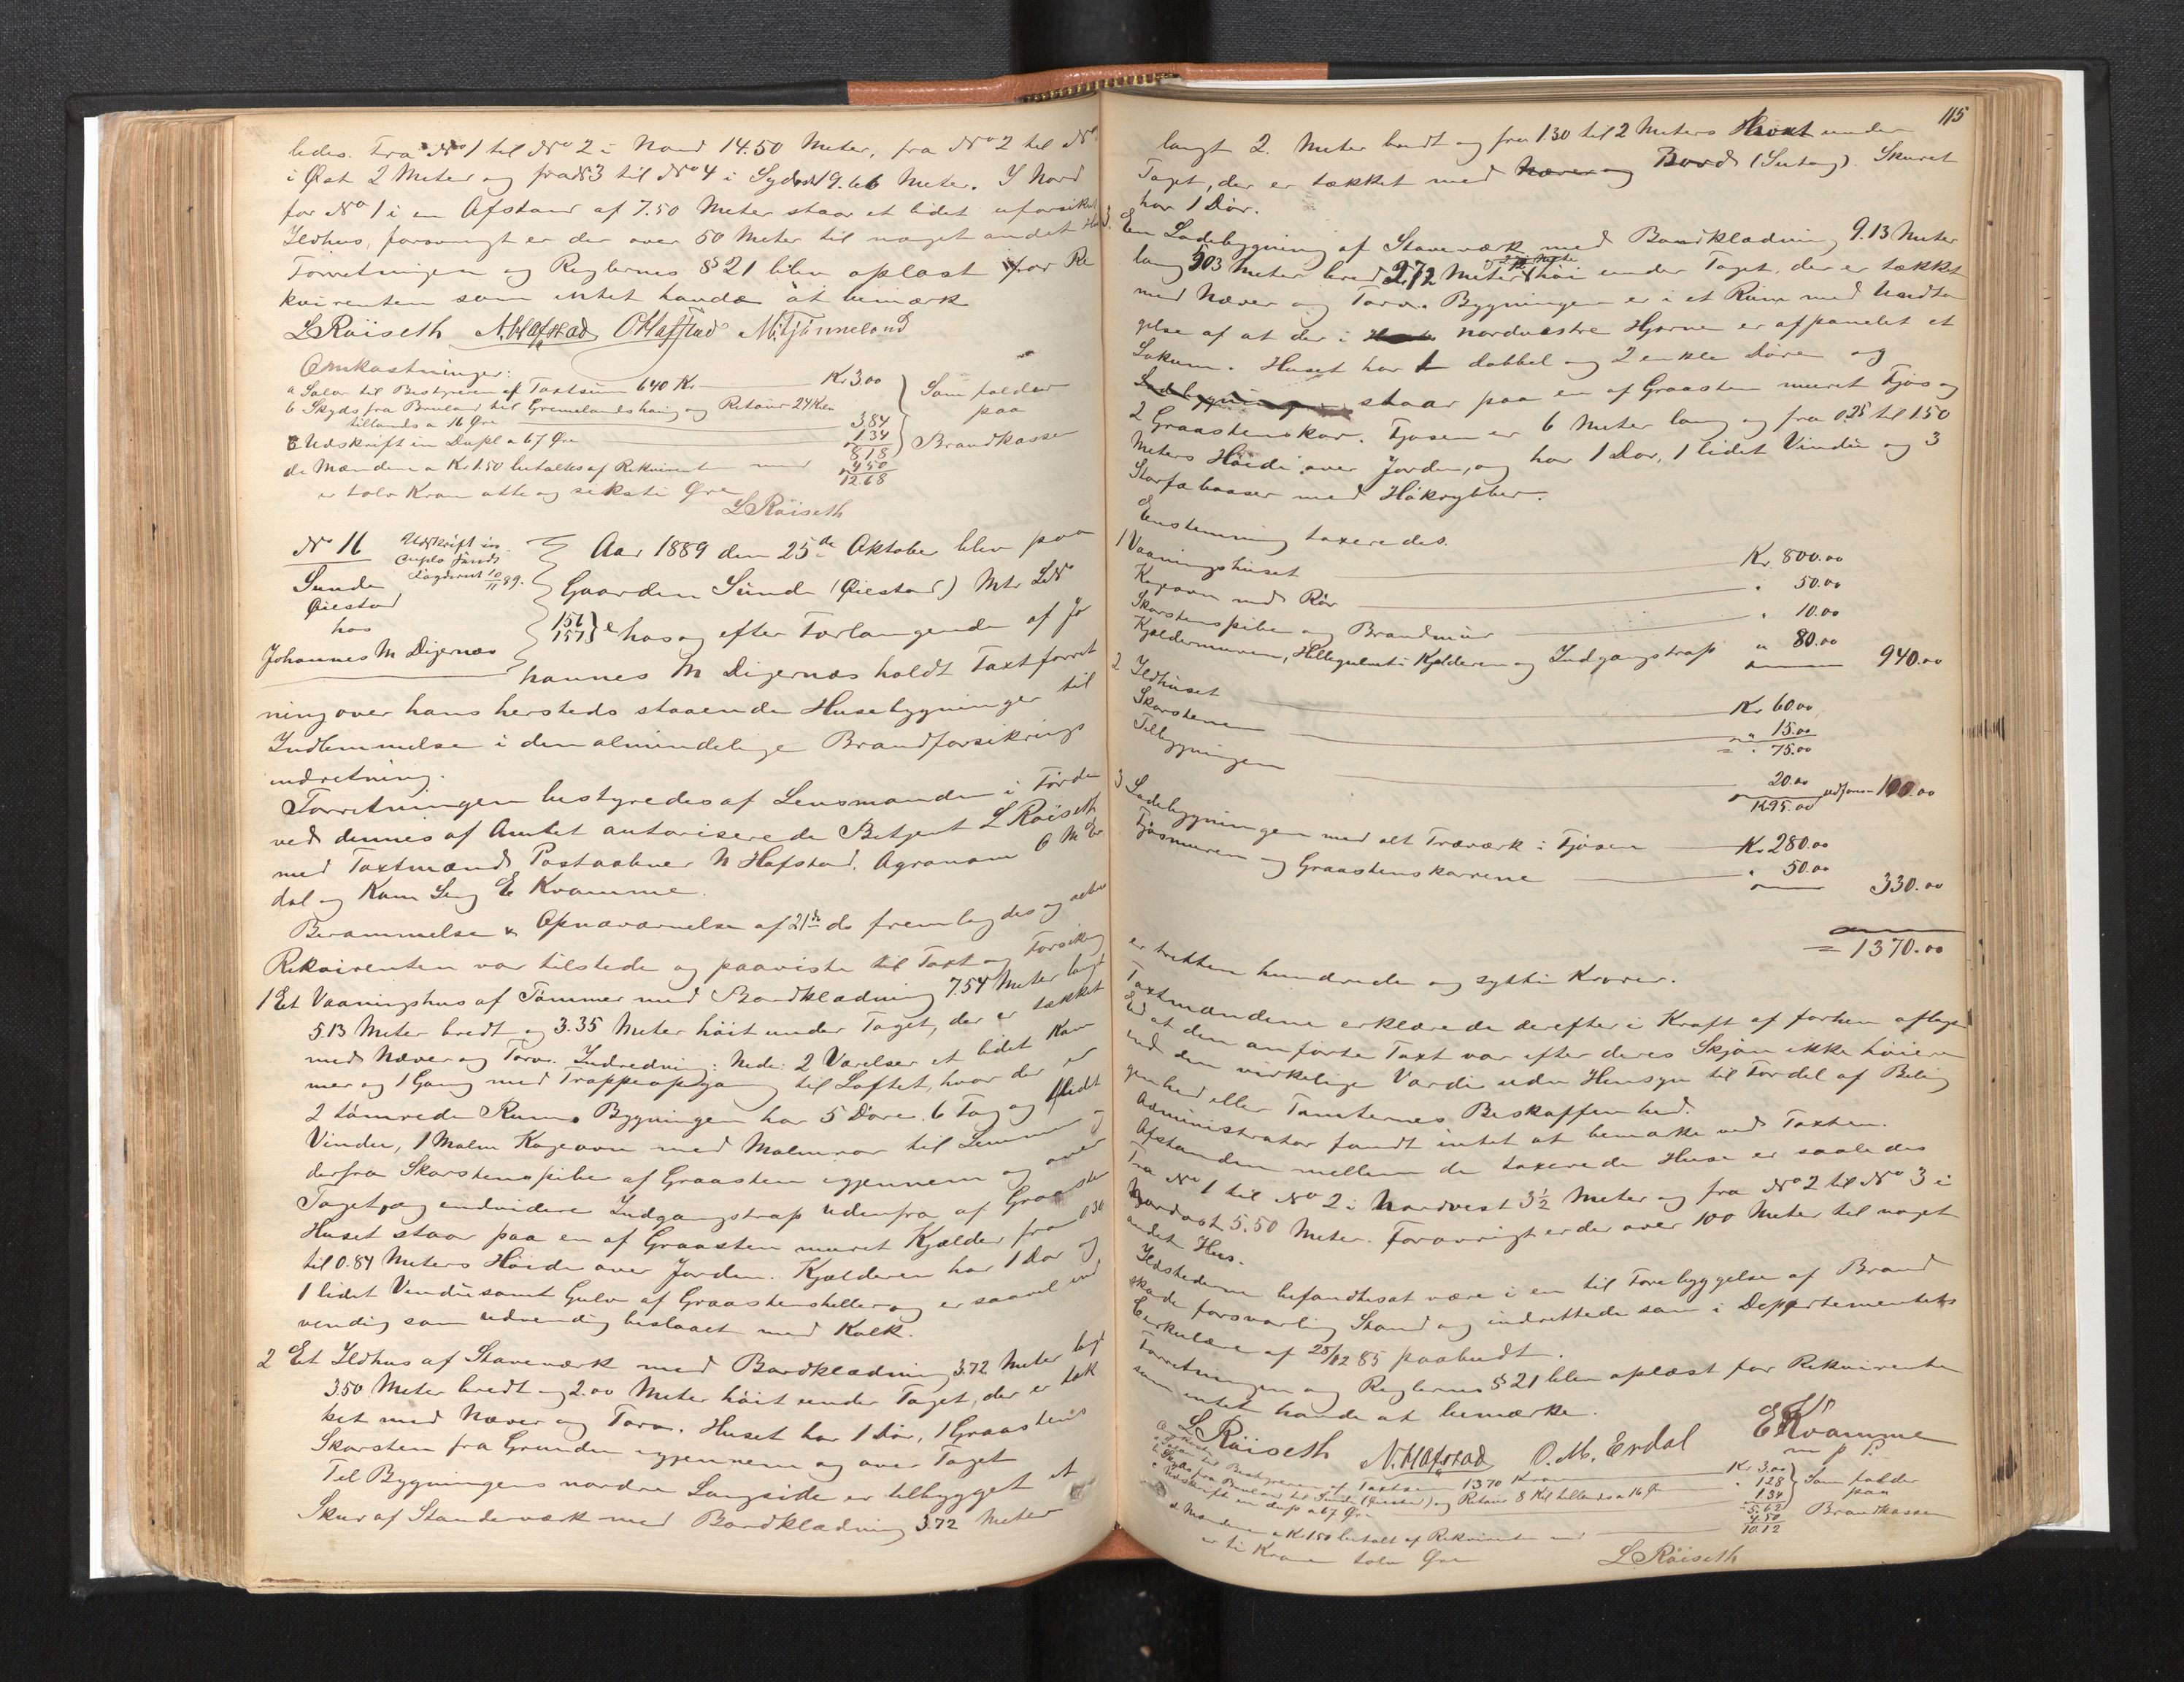 ledes. Fra No 1 til No 2 i Nord 14.50 Meter, fra No 2 til No
i Øst 2 Meter og fra No 3 til No 4 i Sydost 9.66 Meter. I Nord
for No 1 i en Afstand af 7.50 Meter staar et lidet uforsikret
Ildhus, forøvrigt er der over 50 Meter til noget andet Hus.
Forretningen og Reglernes § 21 blev oplæst for Re
kvirenten som intet havde at bemærke
L Røiseth N. Hafstad O Hafstad M. Tjønneland
Omkostninger:
a Salær til Bestyreren af Taxtsum 640 Kr Kr 3.00
b Skyds fra Bruland til Gremelandshaug og Retour 24 Klm
tillands a 16 Øre 3.84
c Udskrift in Dupl a 67 Øre 1.34
8.18
Som falder
paa
Brandkassen
de Mændene a Kr 1.50 betaltes af Rekvirenten med 4.50
12.68
er tolv Kroner otte og seksti Øre
L Røiseth
No 16
Sunde
Øiestad
hos
Johannes M Digernæs
Udskrift in
duplo sendt
Fogderiet 10/11 89.
Aar 1889 den 25de Oktober blev paa
Gaarden Sunde (Øiestad) Mtr LNo
156
157 hos og efter Forlangende af Jo
hannes M Digernæs holdt Taxtforret
ning over hans hersteds staaende Husebygninger til
Indlemmelse i den almindelige Brandforsikrings
indretning.
Forretningen bestyredes af Lensmanden i Førde
ved dennes af Amtet autoriserede Betjent L Røiseth
med Taxtmænd Postaabner N Hafstad, Agronom O M Er
dal og Kam Leng E Kvamme.
Berammelse & Opnævnelse af 21de ds fremlagdes og
Rekvirenten var tilstede og paaviste til Taxt og Forsikring
1 Et Vaaningshus af Tømmer med Bordklædning 7.54 Meter langt
5.13 Meter bredt og 3.35 Meter høit under Taget, der er tækket
med Næver og Torv. Indredning: Nede: 2 Værelser et lidet Kam
mer og 1 Gang med Trappeopgang til Loftet, hvor der er
2 tømrede Rum. Bygningen har 5 Døre. 6 Fag og 1 lidet
Vindu, 1 Malm Kogeovn med Malmrør til Lemmen og
derfra Skorstenspibe af Graasten igjennem og over
Taget, og endvidere Indgangstrap udenfra af Graasten
Huset staar paa en af Graasten muret Kjælder fra 0.30
til 0.84 Meters Høide over Jorden. Kjælderen har 1 Dør og
1 lidet Vindu samt Gulv af Graastensheller og er saavel ind
vendig som udvendig beslaaet med Kalk.
2 Et Ildhus af Staveværk med Bordklædning 3.72 Meter langt
3.50 Meter bredt og 2.00 Meter høit under Taget, der er tæk
ket med Næver og Torv. Huset har 1 Dør, 1 Graastens
Skorsten fra Grunden igjennem og over Taget
Til Bygningens nordre Langside er tilbygget et
Skur af Standerværk med Bordklædning 3.72 Meter
115
langt 2. Meter bredt og fra 1.30 til 2 Meters Høide under
Taget, der er tækket med Næver og Bord (Sutag). Skuret
har 1 Dør.
3. En Ladebygning af Staveværk med Bordklædning 9.13 Meter
lang 5.03 Meter bred 2.72 Meter høi under Taget, der er tækket
med Næver og Torv. Bygningen er i et Rum med Undta
gelse af at der i nordvestre Hjørne er afpanelet et
Lokum. Huset har 1 dobbel og 2 enkle Døre og
Ladebygningen staar paa en af Graasten muret Fjøs og
2 Graastenskar. Fjøsen er 6 Meter lang og fra 0.25 til 1.50
Meters Høide over Jorden, og har 1 Dør, 1 lidet Vindu og 3
Storfæbaaser med Høkrybber.
Eenstemmig taxeredes.
1 Vaaningshuset Kr. 800.00
Kogeovn med Rør " 50.00
Skorstenspiben og Brandmur " 10.00
Kjældermuren, Hellegulvet i Kjælderen og Indgangstrap " 80.00 940.00
2 Ildhuset Kr 60.00
Skorstenen " 15.00
= " 75.00
Tilbygningen 20.00
Kr 95.00 udføres 100.00
3 Ladebygningen med alt Træværk i Fjøsen Kr 280.00
Fjøsmuren og Graastenskarrene " 50.00 330.00
= 1370.00
er tretten hundrede og sytti Kroner.
Taxtmændene erklærede derefter i Kraft af forhen aflagt
Ed at den anførte Taxt var efter deres Skjøn ikke høiere
end den virkelige Værdi uden Hensyn til Fordel af Belig
genhed eller Tomternes Beskaffenhed.
Administrator fandt intet at bemærke ved Taxten.
Afstanden mellem de taxerede Huse er saaledes
Fra No 1 til No 2 i Nordvest 3½ Meter og fra No 2 til No 3 i
Nordost 5.50 Meter. Forøvrigt er der over 100 Meter til noget
andet Hus.
Ildstederne befandtes at være i en til Forebyggelse af Brand
skade forsvarlig Stand og indrettede som i Departementets
Cirkulære af 25/12 85 paabudt.
Forretningen og Reglernes § 21 blev oplæst for Rekvirenten
som intet havde at bemærke.
L Røiseth N. Hafstad O. M. Erdal E Kvamme
m p P.
a Salær til Bestyreren af Taxtsum 1370 Kroner Kr 3.00
b Skyds fra Bruland til Sunde (Øiestad) og Retour 8 Kil tillands a 16 Ø " 1.28
c Udskrift in dup a 67 Øre 1.34
5.62
Som falder
paa
Brandkassen
d Mændene a Kr 1.50 betalt af Rekvirenten med 4.50
10.12
er ti Kroner tolv Øre
L Røiseth